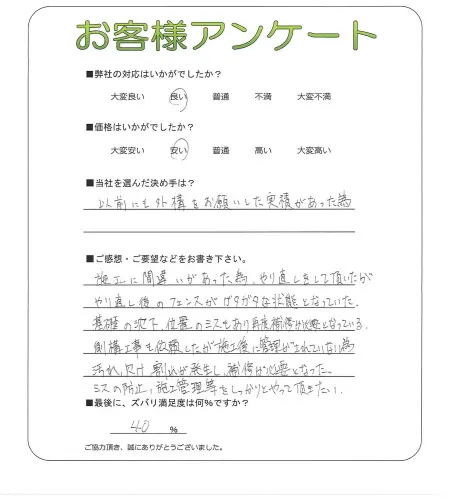 お客様アンケート
■弊社の対応はいかがでしたか?
大変良い 良い 普通 不満 大変不満
■価格はいかがでしたか?
大変安い 安い 普通 高い 大変高い
■当社を選んだ決め手は?
以前にも外構をお願いした実績があった為
■ご感想・ご要望などをお書き下さい。
施工に間違いがあった為、やり直しをして頂いたが
やり直し後のフェンスがガタガタな状態となっていた。
基礎の沈下、位置のミスもあり再度補修が必要となっている。
側構工事も依頼したが施工後に管理がされていない為
汚れ、欠け、割れが発生し、補修が必要となった。
ミスの防止、施工管理等をしっかりとやって頂きたい。
■最後に、ズバリ満足度は何%ですか?
40 %
ご協力頂き、誠にありがとうございました。